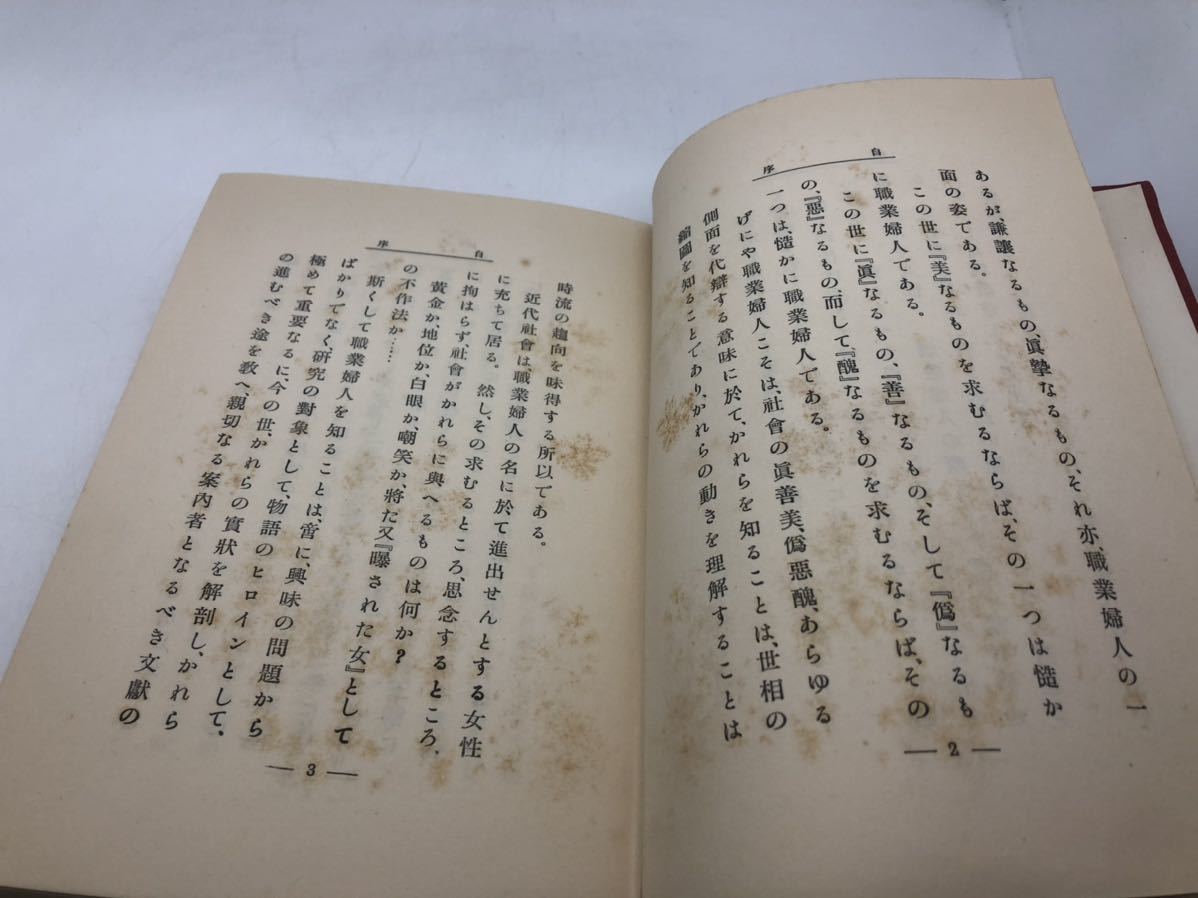 自序
あるが、謙讓なるもの、眞摯なるもの、それ亦、職業婦人の一
面の姿である。
この世に『美』なるものを求むるならば、その一つは慥か
に職業婦人である。
この世に『眞』なるもの、『善』なるもの、そして『僞』なるも
の、『惡』なるもの、而して『醜』なるものを求むるならば、その
一つは、慥かに職業婦人である。
げにや職業婦人こそは、社會の眞善美、僞惡醜、あらゆる
側面を代辯する意味に於て、かれらを知ることは、世相の
縮圖を知ることであり、かれらの動きを理解することは
— 2 —
自序
時流の趨向を味得する所以である。
近代社會は、職業婦人の名に於て進出せんとする女性
に充ちて居る。然し、その求むるところ、思念するところ、
に拘はらず、社會がかれらに與へるものは何か?
黃金か、地位か、白眼か、嘲笑か、將た又『曝された女』として
の不作法か……
斯くして職業婦人を知ることは、啻に、興味の問題から
ばかりでなく、硏究の對象として、物語のヒロインとして、
極めて重要なるに、今の世、かれらの實狀を解剖し、かれら
の進むべき途を敎へ、親切なる案內者となるべき文獻の
— 3 —